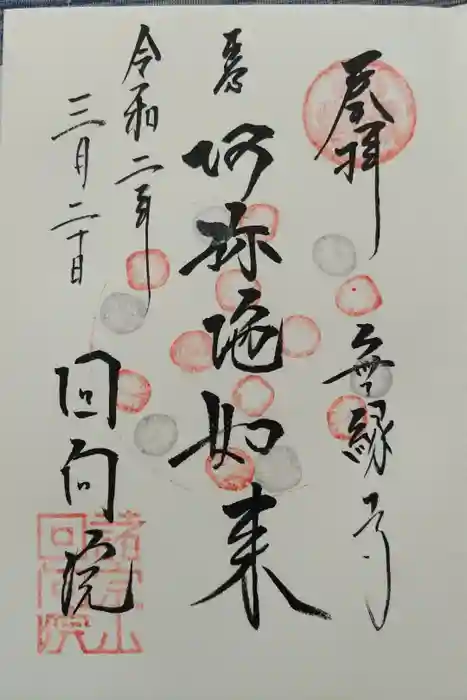 拝
無縁寺
阿弥陀如来
令和二年
三月二十日
回向院
諸宗山
回向院